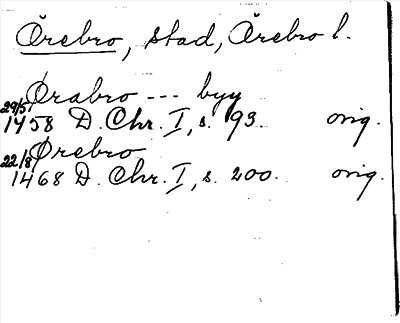 Örebro, stad, Örebro l.
Ørabro --- byy
29/5 1458 D. Chr. I, s. 93. orig.
Ørebro
22/8 1468 D. Chr. I, s. 200. orig.